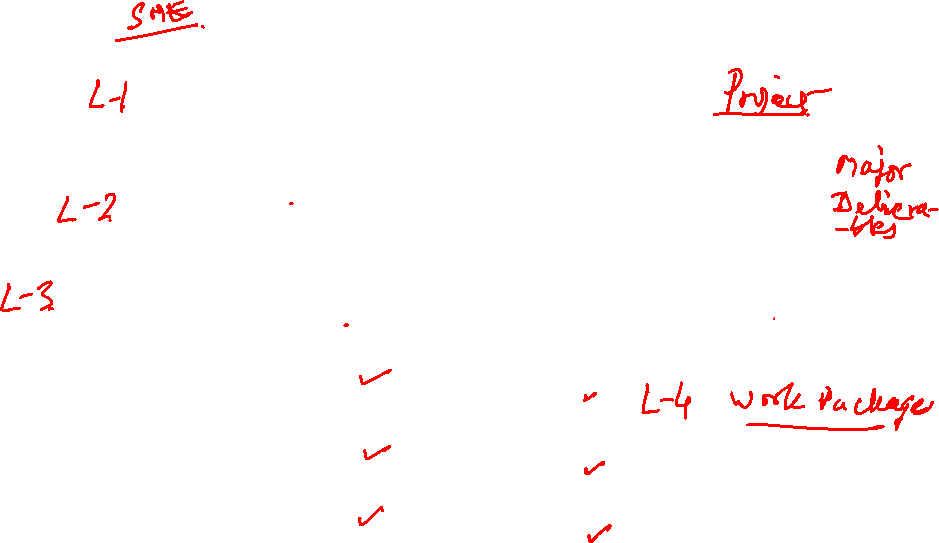 SME.
L-1
Project
Major
L-2
Delivera-
-bles
L-3
L-4 Work Package